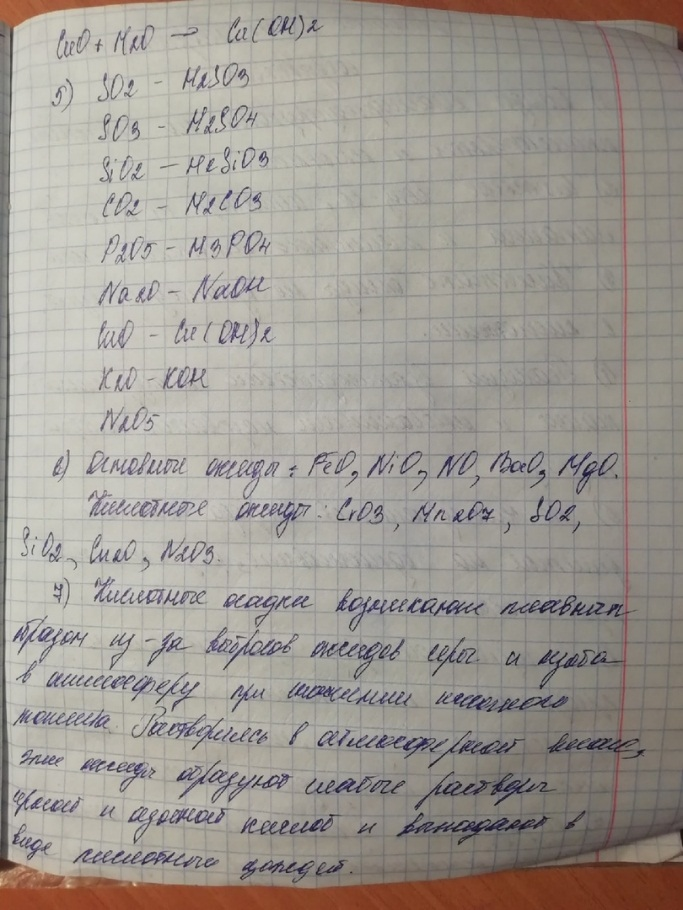 CuO + H2O → Cu(OH)2
5) SO2 - H2SO3
SO3 - H2SO4
SiO2 - H2SiO3
CO2 - H2CO3
P2O5 - H3PO4
Na2O - NaOH
CuO - Cu(OH)2
K2O - KOH
N2O5
6) Основные оксиды: FeO, NiO, NO, BaO, MgO.
Кислотные оксиды: CrO3, Mn2O7, SO2,
SiO2, Cu2O, N2O3.
7) Кислотные осадки возникают главным
образом из-за выбросов оксидов серы и азота
в атмосферу при сжигании
топлива. Растворяясь в атмосферной
эти оксиды образуют слабые растворы
серной и азотной кислот и выпадают в
виде кислотных дождей.